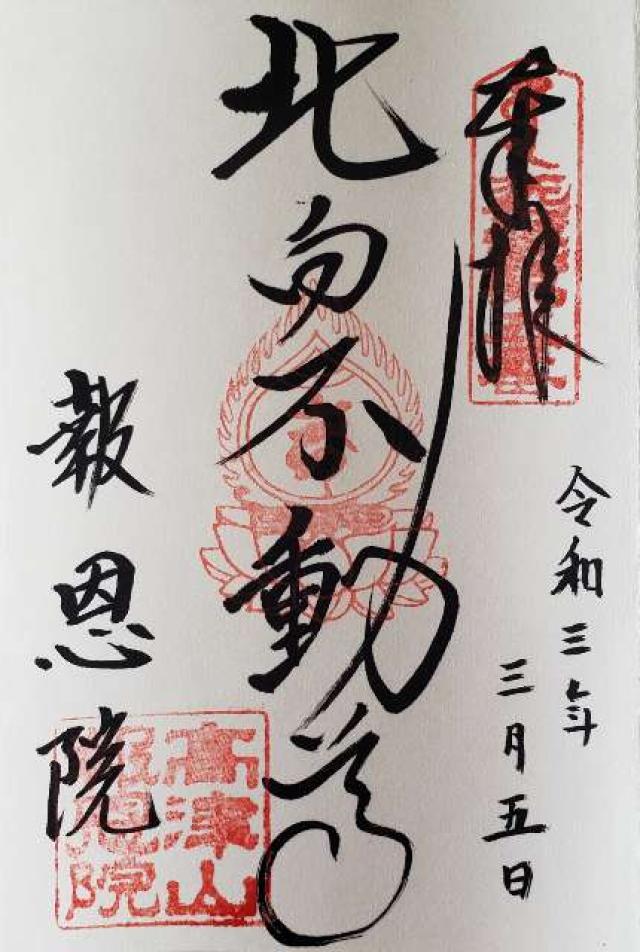 奉拝
令和三年
三月五日
北向不動尊
報恩院
高津山
報恩院